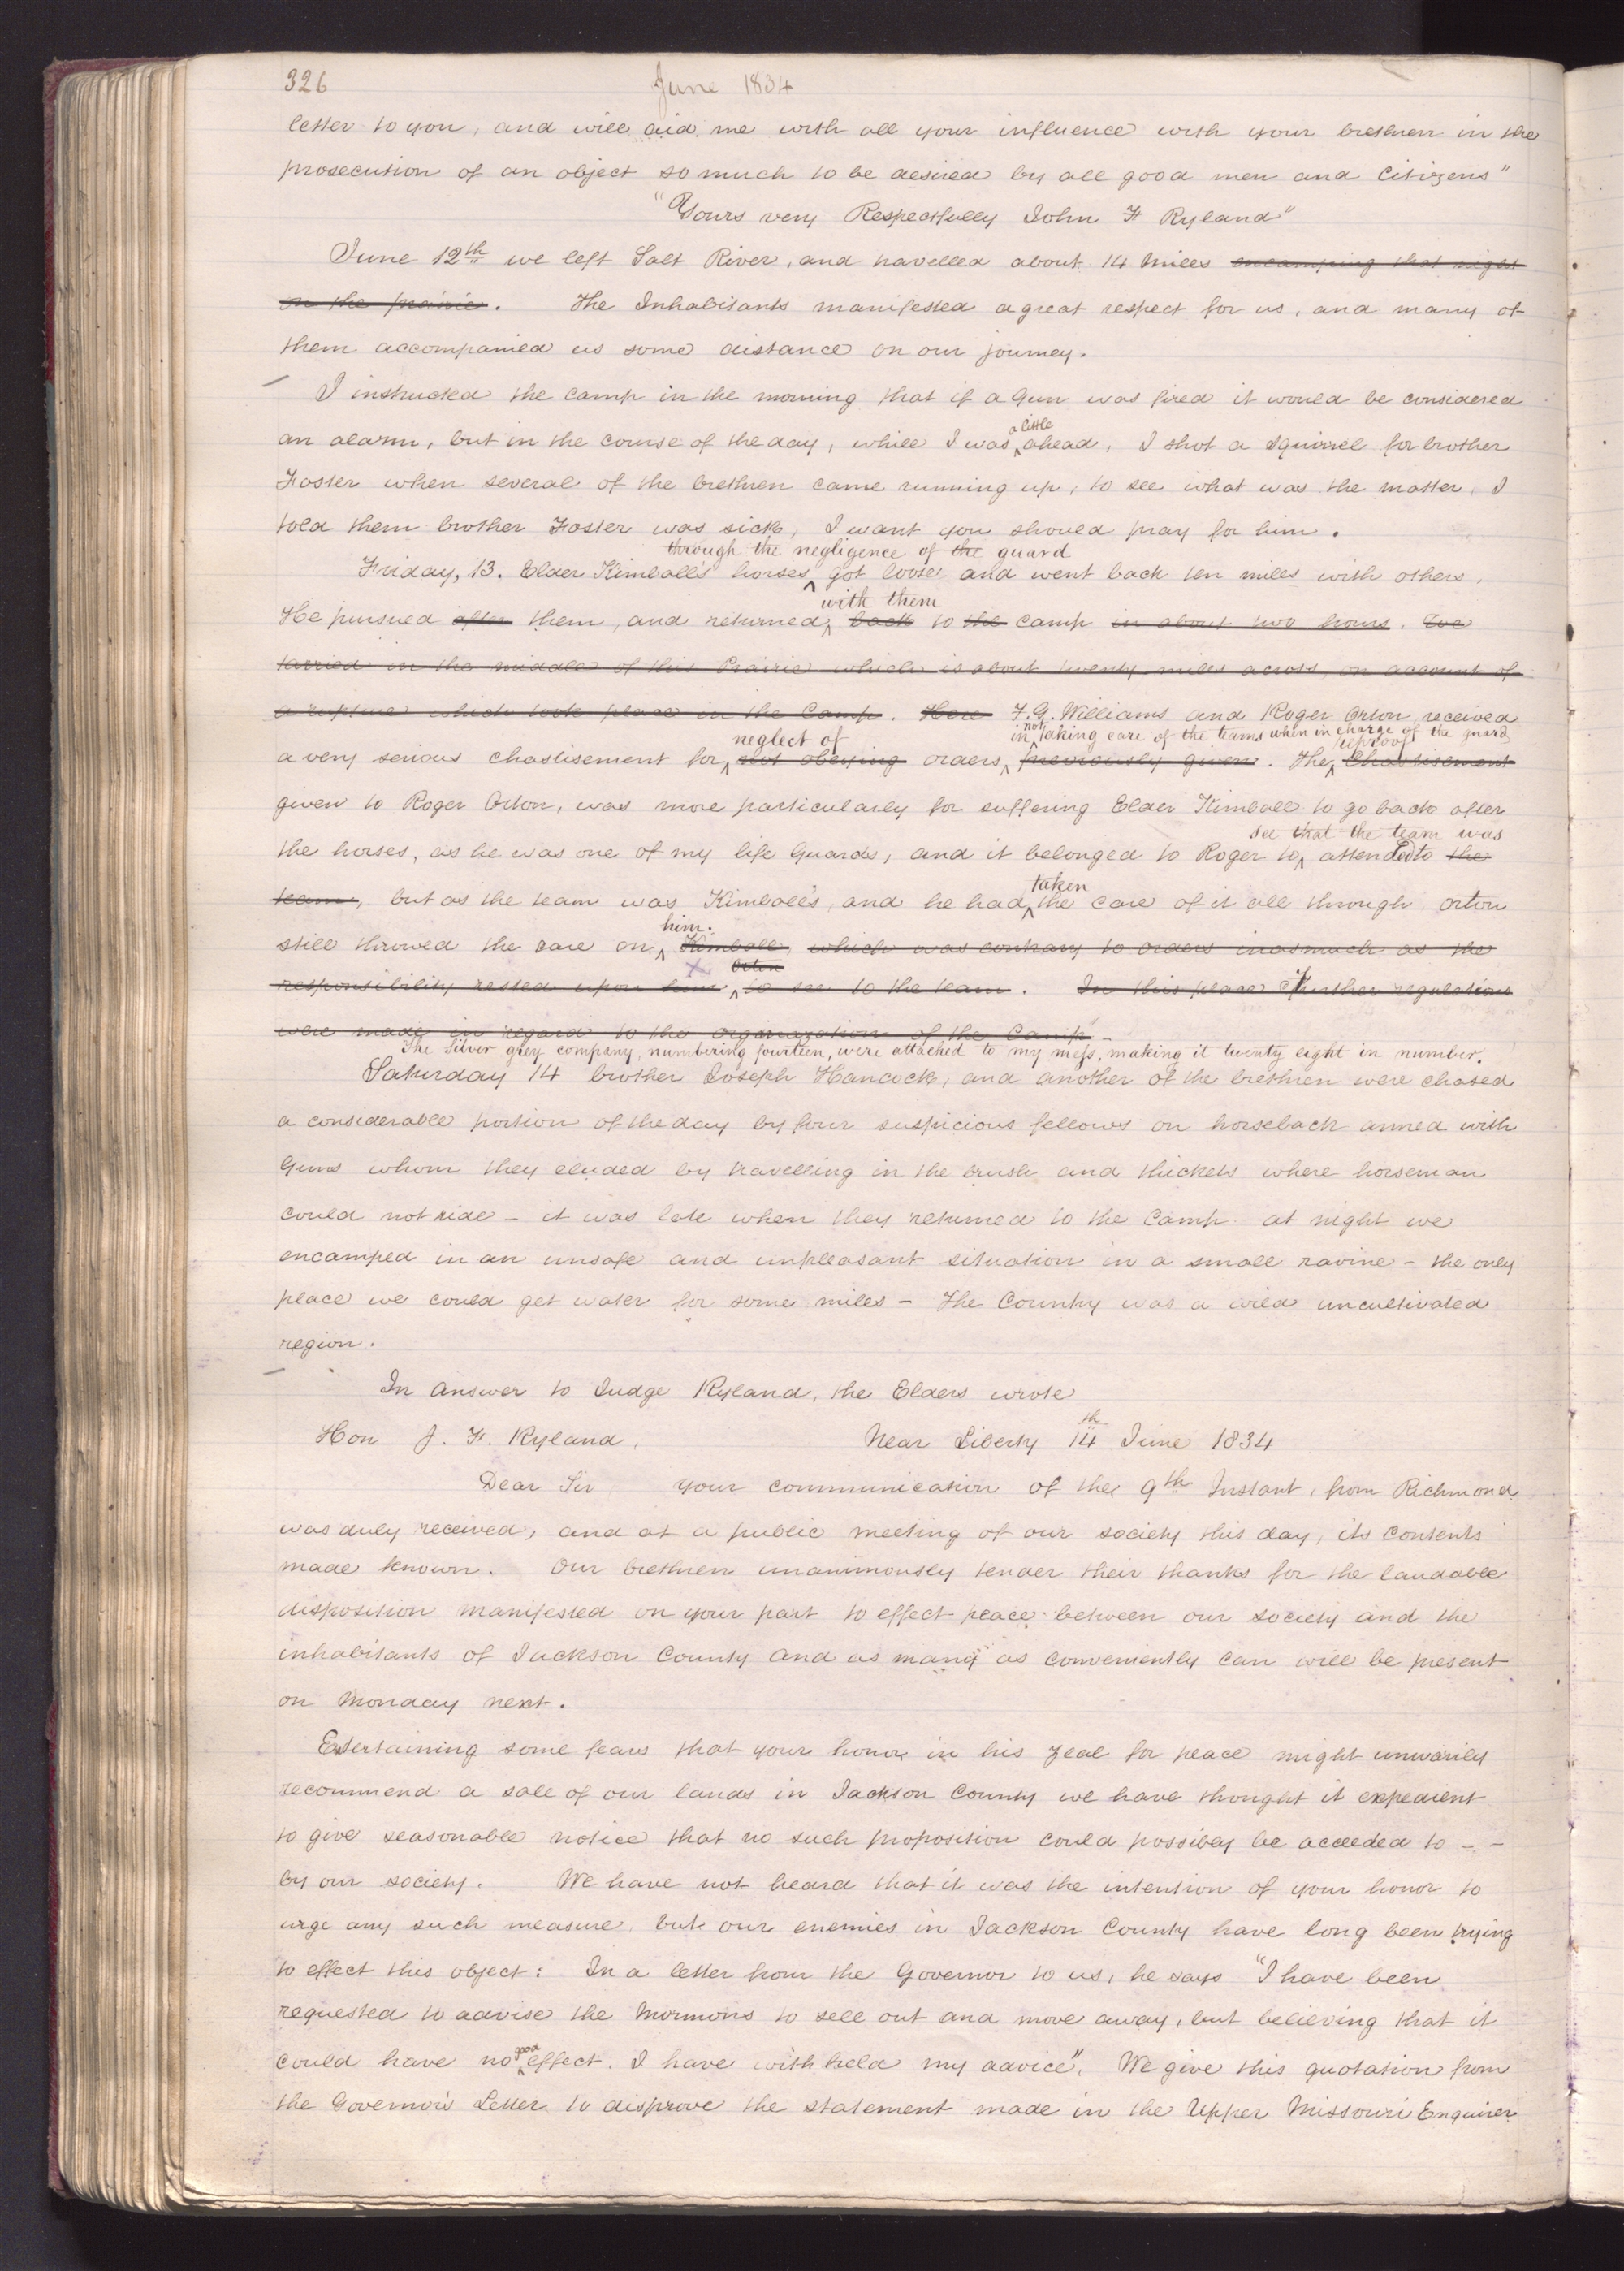 326 June 1834
letter to you, and will aid me with all your influence with your brethren in the
prosecution of an object so much to be desired by all good men and Citizens"
"Yours very Respectfully John F Ryland"
June 12th we left Salt River, and travelled about 14 Miles encamping that night
on the prairie. The Inhabitants manifested a great respect for us, and many of
them accompanied us some distance on our journey.
I instructed the camp in the morning that if a Gun was fired it would be considered
a little
an alarm, but in the course of the day, while I was ^ ahead, I shot a squirrel for brother
Foster when several of the brethren came running up, to see what was the matter, I
told them brother Foster was sick, I want you should pray for him.
through the negligence of the guard
Friday, 13. Elder Kimball's horses ^ got loose and went back ten miles with others.
with them
He pursued after them, and returned ^ back to the camp in about two hours. We
tarried in the middle of this Prairie which is about twenty miles across, on account of
a rupture which took place in the Camp. Here F.G. Williams and Roger Orton received
neglect of in not taking care of the teams when in charge of the guard reproof
a very serious chastisement for ^ not obeying orders ^ previously given. The ^ Chastisement
given to Roger Orton, was more particularly for suffering Elder Kimball to go back after
see that the team was
the horses, as he was one of my life Guards, and it belonged to Roger to ^ attended to the
taken
team, but as the team was Kimball's, and he had ^ the care of it all through Orton
him.
still throwed the care on ^ Kimball, which was contrary to orders inasmuch as the
Orton
responsibility rested upon him ^ to see to the team. In this place Further regulations
were made in regard to the organization of the Camp -
The Silver grey company, numbering fourteen, were attached to my mess, making it twenty eight in number.
Saturday 14 brother Joseph Hancock, and another of the brethren were chased
a considerable portion of the day by four suspicious fellows on horseback armed with
Guns whom they eluded by travelling in the brush and thickets where horseman
could not ride - it was late when they returned to the Camp at night we
encamped in an unsafe and unpleasant situation in a small ravine - the only
place we could get water for some miles - the Country was a wild uncultivated
region.
In answer to Judge Ryland, the Elders wrote
Hon J. F. Ryland, Near Liberty 14th June 1834
Dear Sir your communication of the 9th Instant, from Richmond
was duly received, and at a public meeting of our society this day, its contents
made known. Our brethren unanimously tender their thanks for the laudable
disposition manifested on your part to effect peace between our society and the
inhabitants of Jackson County and as many as conveniently can will be present
on Monday next.
Entertaining some fears that your honor in his zeal for peace might unwarily
recommend a sale of our lands in Jackson County we have thought it expedient
to give seasonable notice that no such proposition could possibly be acceeded to - -
by our society. We have not heard that it was the intention of your honor to
urge any such measure, but our enemies in Jackson County have long been trying
to effect this object: In a letter from the Governor to us, he says "I have been
requested to advise the Mormons to sell out and move away, but believing that it
good
could have no ^ effect. I have with held my advice". We give this quotation from
the Governor's Letter to disprove the statement made in the Upper Missouri Enquirer